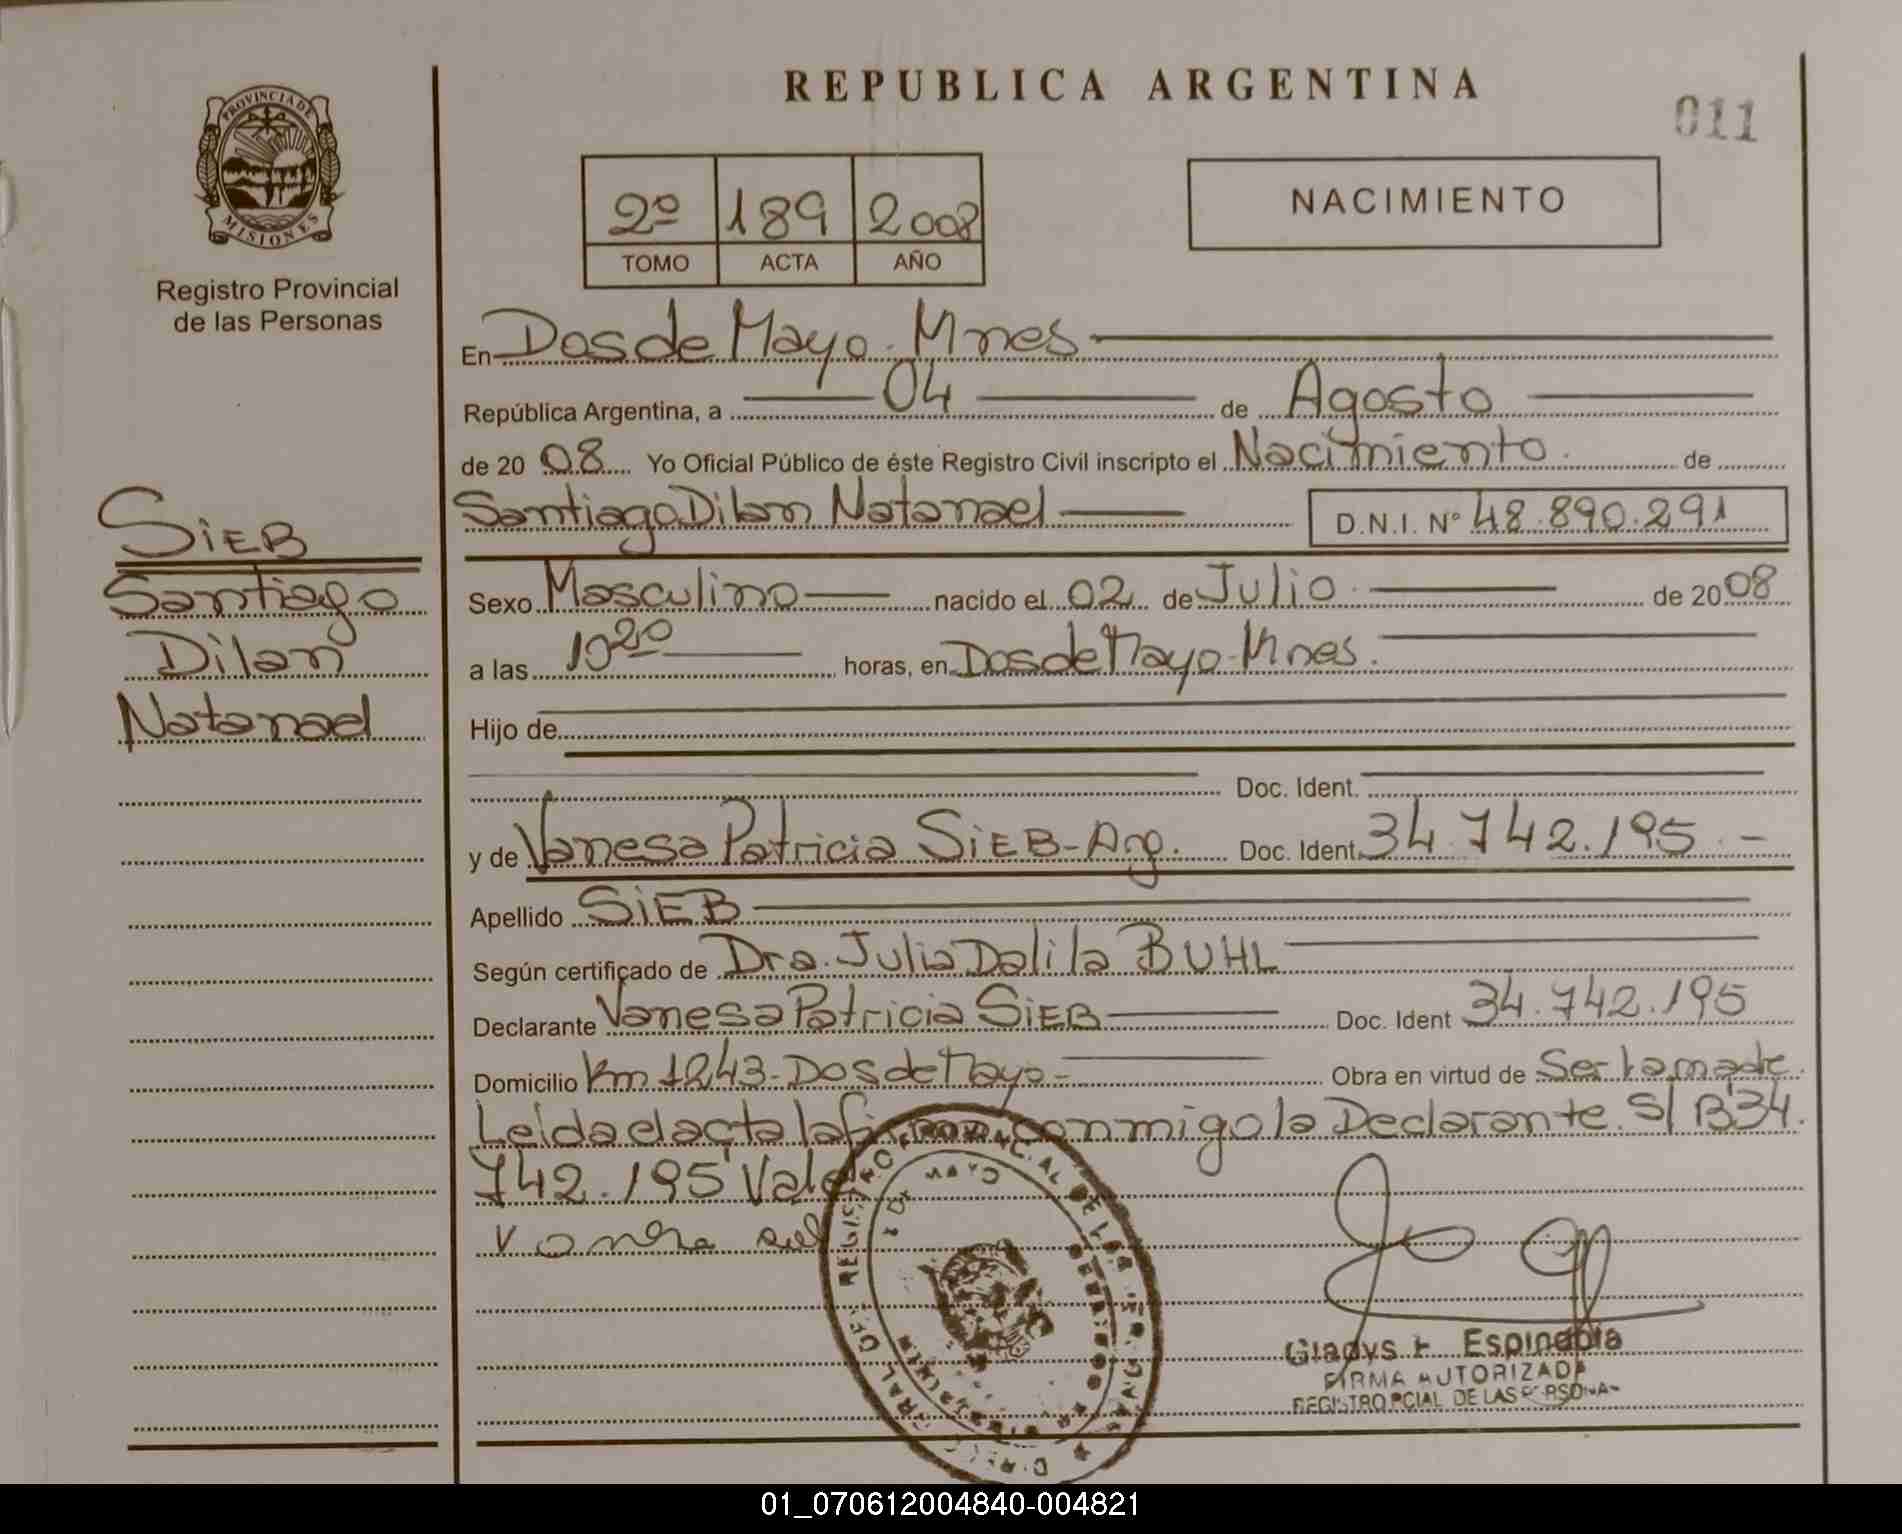 REPUBLICA ARGENTINA
011
PROVINCIA DE
MISIONES
Registro Provincial
de las Personas
2º 189 2008
TOMO ACTA AÑO
NACIMIENTO
En Dos de Mayo. Mnes
República Argentina, a 04 de Agosto
de 20 08 Yo Oficial Público de éste Registro Civil inscripto el Nacimiento. de
Santiago Dilan Natanael D.N.I. Nº 48.890.291
SiEB
Santiago
Dilan
Natanael
Sexo Masculino nacido el 02 de Julio de 20 08
a las horas, en Dos de Mayo-Mnes.
Hijo de
Doc. Ident.
y de Vanesa Patricia SiEB-Arg. Doc. Ident. 34.742.195.-
Apellido SiEB
Según certificado de Dra. Julia Dalila BUHL
Declarante Vanesa Patricia SiEB Doc. Ident 34.742.195
Domicilio Km 1243-Dos de Mayo- Obra en virtud de Ser la madre.
Leida el acta la firman conmigo la Declarante. S/ B 34.
742.195 Vale
Gladys Espindola
FIRMA AUTORIZADA
REGISTRO PCIAL DE LAS PERSONAS
01_070612004840-004821